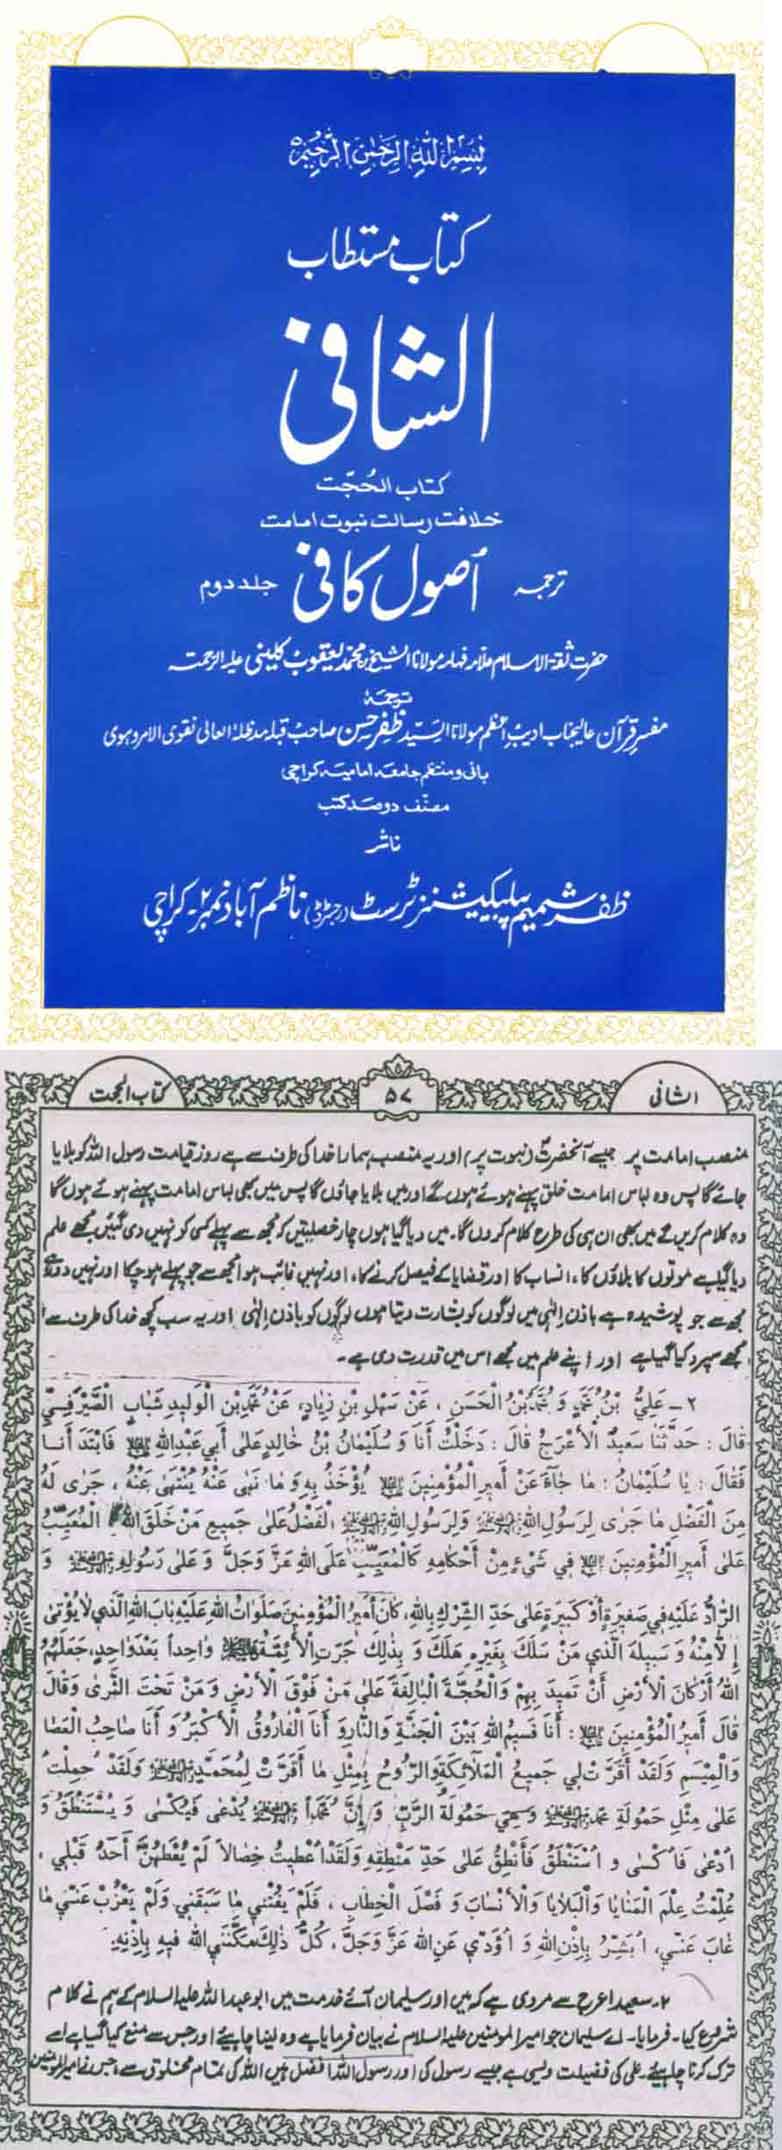 بسم اللہ الرحمن الرحیم
کتاب مستطاب
الشافی
کتاب الحُجّت
خلافت رسالت نبوت امامت
ترجمہ اُصول کافی جلد دوم
حضرت ثقۃ الاسلام علامہ فہامہ مولانا الشیخ بن محمد یعقوب کلینی علیہ الرحمتہ
ترجمۂ
مفسر قرآن عالیجناب ادیب اعظم مولانا السید ظفر حسن صاحب قبلہ مدظلہ العالی نقوی الامروہوی
بانی و منتظم جامعہ امامیہ کراچی
مصنف دو صد کتب
ناشر
ظفر شمیم پبلیکیشنز ٹرسٹ (رجسٹرڈ) ناظم آباد نمبر ۲۔ کراچی
الشافی ۵۷ کتاب الحجت
منصب امامت پر جیسے آنحضرتؐ (نبوت پر) اور یہ منصب ہمارا خدا کی طرف سے ہے روز قیامت رسول اللہ کو بلایا
جائے گا پس وہ لباس امامت خلق پہنے ہوئے ہوں گے اور میں بلایا جاؤں گا پس میں بھی لباس امامت پہنے ہوئے ہوں گا
وہ کلام کریں گے میں بھی ان ہی کی طرح کلام کروں گا۔ میں دیا گیا ہوں چار خصلتیں کہ مجھ سے پہلے کسی کو نہیں دی گئیں مجھے علم
دیا گیا ہے موتوں کا بلاؤں کا، انساب کا اور قضایا کے فیصل کرنے کا، اور نہیں غائب ہوا مجھ سے جو پہلے ہو چکا اور نہیں دور ہے
مجھ سے جو پوشیدہ ہے باذن الٰہی میں لوگوں کو بشارت دیتا ہوں لوگوں کو باذن الٰہی اور یہ سب کچھ خدا کی طرف سے
مجھے سپرد کیا گیا ہے اور اپنے علم میں مجھے اس میں قدرت دی ہے۔
۲ – عَلِيُّ بْنُ مُحَمَّدٍ وَ مُحَمَّدُ بْنُ الْحَسَنِ ، عَنْ سَهْلِ بْنِ زِيَادٍ، عَنْ مُحَمَّدِ بْنِ الْوَلِيدِ شَبَابِ الصَّيْرَفِيِّ
قَالَ : حَدَّثَنَا سَعِيدٌ الْأَعْرَجُ قَالَ : دَخَلْتُ أَنَا وَ سُلَيْمَانُ بْنُ خَالِدٍ عَلَى أَبِي عَبْدِاللهِ فَابْتَدَأَنَا
فَقَالَ : يَا سُلَيْمَانُ : مَا جَاءَ عَنْ أَمِيرِ الْمُؤْمِنِينَ يُؤْخَذُ بِهِ وَ مَا نَهَى عَنْهُ يُنْتَهَى عَنْهُ ، جَرَى لَهُ
مِنَ الْفَضْلِ مَا جَرَى لِرَسُولِ اللهِ وَلِرَسُولِ اللهِ الْفَضْلُ عَلَى جَمِيعِ مَنْ خَلَقَ اللهُ الْمُعَيِّبُ
عَلَى أَمِيرِ الْمُؤْمِنِينَ فِي شَيْءٍ مِنْ أَحْكَامِهِ كَالْمُعَيِّبِ عَلَى اللهِ عَزَّ وَجَلَّ وَ عَلَى رَسُولِهِ وَ
الرَّادُّ عَلَيْهِ فِي صَغِيرَةٍ أَوْ كَبِيرَةٍ عَلَى حَدِّ الشِّرْكِ بِاللهِ، كَانَ أَمِيرُ الْمُؤْمِنِينَ صَلَوَاتُ اللهِ عَلَيْهِ بَابَ اللهِ الَّذِي لَا يُؤْتَى
إِلَّا مِنْهُ وَ سَبِيلَهُ الَّذِي مَنْ سَلَكَ بِغَيْرِهِ هَلَكَ وَ بِذَلِكَ جَرَتِ الْأَئِمَّةُ وَاحِداً بَعْدَ وَاحِدٍ، جَعَلَهُمُ
اللهُ أَرْكَانَ الْأَرْضِ أَنْ تَمِيدَ بِهِمْ وَالْحُجَّةَ الْبَالِغَةَ عَلَى مَنْ فَوْقَ الْأَرْضِ وَ مَنْ تَحْتَ الثَّرَى وَقَالَ
قَالَ أَمِيرُ الْمُؤْمِنِينَ : أَنَا قَسِيمُ اللهِ بَيْنَ الْجَنَّةِ وَالنَّارِ وَ أَنَا الْفَارُوقُ الْأَكْبَرُ وَ أَنَا صَاحِبُ الْعَصَا
وَالْمِيسَمِ وَلَقَدْ أَقَرَّتْ لِي جَمِيعُ الْمَلَائِكَةِ وَالرُّوحُ بِمِثْلِ مَا أَقَرَّتْ لِمُحَمَّدٍ وَلَقَدْ حُمِلْتُ
عَلَى مِثْلِ حَمُولَةِ مُحَمَّدٍ وَ هِيَ حَمُولَةُ الرَّبِّ وَ إِنَّ مُحَمَّداً يُدْعَى فَيُكْسَى وَ يُسْتَنْطَقُ وَ
اُدْعَى فَاُكْسَى وَ اُسْتَنْطَقُ فَأَنْطِقُ عَلَى حَدِّ مَنْطِقِهِ وَلَقَدْ اُعْطِيتُ خِصَالاً لَمْ يُعْطَهُنَّ أَحَدٌ قَبْلِي ،
عُلِّمْتُ عِلْمَ الْمَنَايَا وَالْبَلَايَا وَالْأَنْسَابَ وَ فَصْلَ الْخِطَابِ ، فَلَمْ يَفُتْنِي مَا سَبَقَنِي وَلَمْ يَعْزُبْ عَنِّي مَا
غَابَ عَنِّي، اُبَشِّرُ بِإِذْنِ اللهِ وَ اُؤَدِّي عَنِ اللهِ عَزَّ وَجَلَّ، كُلُّ ذَلِكَ مَكَّنَنِي اللهُ فِيهِ بِإِذْنِهِ.
۲۔ سعید اعرج سے مروی ہے کہ میں اور سلیمان آئے خدمت میں ابو عبداللہ علیہ السلام کے ہم نے کلام
شروع کیا۔ فرمایا۔ اے سلیمان جو امیر المومنین علیہ السلام نے بیان فرمایا ہے وہ لینا چاہیئے اور جس سے منع کیا گیا ہے اسے
ترک کرنا چاہیئے۔ علی کی فضیلت ویسی ہے جیسے رسول کی اور رسول اللہ افضل ہیں اللہ کی تمام مخلوق سے، جس نے امیر المومنین